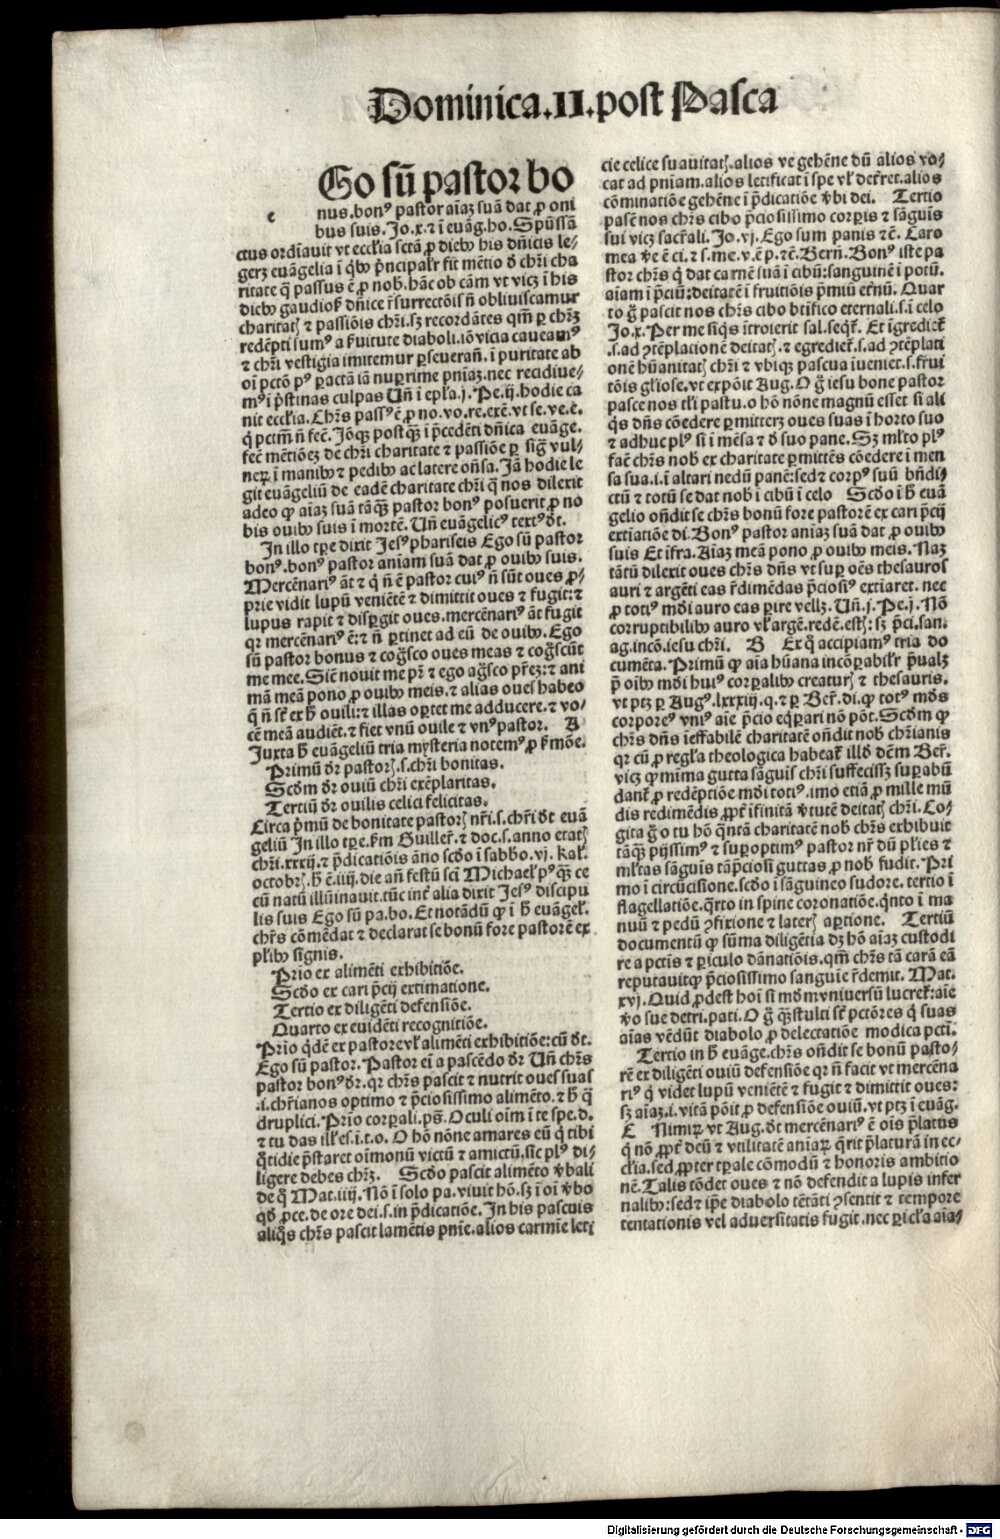 Dominica.II.post Pasca
e Go sũ pastor bo
nus.bonꝰ pastor aĩaꝫ suã dat ꝓ oui
bus suis. Jo.x.⁊ ĩ euãg.ho. Spũssã
ctus ordĩauit vt eccɫia sctã ꝓ diebꝰ his dñicis le⸗
gerꝫ euãgelia ĩ qͥbꝰ p̃ncipaɫr fit mẽtio đ chr̃i cha
ritate q̃ passus ẽ ꝓ nob̃. hãc ob cãm vt vicꝫ ĩ his
diebꝰ gaudiosꝭ dñice r̃surrectõis ñ obliuiscamur
charitatꝭ ⁊ passiõis chr̃i.sꝫ recordãtes qm̃ ꝑ chr̃ꝫ
redẽpti sumꝰ a ẜuitute diaboli.iõ vicia caueamꝰ
⁊ chr̃i vestigia imitemur ꝑseuerañ. ĩ puritate ab
oĩ pctõ pꝰ ꝑactã iã nuꝑrime pñiaꝫ.nec recidiue⸗
mꝰ ĩ p̃stinas culpas Uñ ĩ epɫa.j.Pe.ij.hodie ca
nit eccɫia.Chr̃s passꝰ ẽ ꝓ no.vo.re.exẽ.vt se.ve.e.
q̃ pctm̃ ñ fec̃. Jõqꝫ postqͣꝫ ĩ p̃cedẽti dñica euãge.
fec̃ mẽtiõeꝫ de chr̃i charitate ⁊ passiõe ꝑ sig̃ vul⸗
neꝝ ĩ manibꝰ ⁊ pedibꝰ ac latere oñsa. Jã hodie le
git euãgeliũ de eadẽ charitate chr̃i q̃ nos dilexit
adeo ꝙ aĩaꝫ suã tãqͣꝫ pastor bonꝰ posuerit ꝓ no
bis ouibꝰ suis ĩ mortẽ. Uñ euãgelicꝰ textꝰ dt̃.
In illo tp̃e dixit Jesꝰ phariseis Ego sũ pastor
bonꝰ.bonꝰ pastor aniam suã dat ꝓ ouibꝰ suis.
Mercẽnariꝰ ãt ⁊ q̃ ñ ẽ pastor cuiꝰ ñ sũt oues ꝓ⸗
prie vidit lupũ veniẽtẽ ⁊ dimittit oues ⁊ fugit:⁊
lupus rapit ⁊ disꝑgit oues.mercẽnariꝰ ãt fugit
qꝛ mercẽnariꝰ ẽ:⁊ ñ ꝑtinet ad eũ de ouibꝰ. Ego
sũ pastor bonus ⁊ cog̃sco oues meas ⁊ cog̃scũt
me mee. Sic̃ nouit me pr̃ ⁊ ego ag̃sco pr̃eꝫ:⁊ ani
mã meã pono ꝓ ouibꝰ meis.⁊ alias oues habeo
q̃ ñ st̃ ex h̃ ouili:⁊ illas oꝑtet me adducere.⁊ vo⸗
cẽ meã audiẽt.⁊ fiet vnũ ouile ⁊ vnꝰ pastor. A
Juxta h̃ euãgeliũ tria mysteria notemꝰ ꝓ ẜmõe.
Primũ dr̃ pastorꝭ.s.chr̃i bonitas.
Scd̃m dr̃ ouiũ chr̃i exẽplaritas.
Tertiũ dr̃ ouilis celici felicitas.
Circa p̃mũ de bonitate pastorꝭ nr̃i.s.chr̃i dt̃ euã
geliũ In illo tp̃e.ẜm Guilleř.⁊ doc.s.anno etatꝭ
chr̃i.xxxij.⁊ p̃dicatiõis ãno scd̃o ĩ sabbo.vj. Kaɫ.
octobrꝭ.h̃ ẽ.iiij.die añ festũ scĩ Michaelꝭ pꝰqͣꝫ ce
cũ natũ illũinauit.tũc int̃ alia dixit Jesꝰ discipu
lis suis Ego sũ pa.bo. Et notãdũ ꝙ ĩ h̃ euãgeɫ.
chr̃s cõmẽdat ⁊ declarat se bonũ fore pastorẽ ex
pɫibꝰ signis.
Prĩo ex alimẽti exhibitiõe.
Scd̃o ex cari p̃cij extimatione.
Tertio ex diligẽti defensiõe.
Quarto ex euidẽti recognitiõe.
Prĩo qͥdẽ ex pastore vɫ alimẽti exhibitiõe:cũ dt̃.
Ego sũ pastor. Pastor eĩ a pascẽdo dr̃ Uñ chr̃s
pastor bonꝰ dr̃.qꝛ chr̃s pascit ⁊ nutrit oues suas
.i.chr̃ianos optimo ⁊ p̃ciosissimo alimẽto.⁊ h̃ q̃
druplici. Prĩo corꝑali.ps̃. Oculi oĩm ĩ te spe.d.
⁊ tu das iɫɫes.i.t.o. O hõ nõne amares eũ q̃ tibi
q̃tidie p̃staret oĩmonũ victũ ⁊ amictũ.sic plꝰ di⸗
ligere debes chr̃ꝫ. Scd̃o pascit alimẽto ṽbali
de q̃ Mat.iiij. Nõ ĩ solo pa.viuit hõ.sꝫ ĩ oĩ ṽbo
qd̃ ꝓce.de ore dei.s.in p̃dicatiõe. In his pascuis
aliq̃s chr̃s pascit lamẽtis pnĩe.alios carmĩe leti
cie celice suauitatꝭ.alios ve gehẽne dũ alios vo⸗
cat ad pnĩam.alios letificat ĩ spe vɫ def̃ret.alios
cõminatiõe gehẽne ĩ p̃dicatiõe ṽbi dei. Tertio
pasẽ nos chr̃s cibo p̃ciosissimo corꝑis ⁊ sãguĩs
sui vicꝫ sacr̃ali. Jo.vj. Ego sum panis ⁊c̃. Caro
mea ṽe ẽ ci.⁊ s.me.v.ẽ p.⁊c̃. Berñ. Bonꝰ iste pa
stor chr̃s q̃ dat carnẽ suã ĩ cibũ:sanguinẽ ĩ potũ.
aĩam ĩ p̃ciũ:deitatẽ ĩ fruitiõis p̃miũ et̃nũ. Quar
to g̃ pascit nos chr̃s cibo btĩfico eternali.s.ĩ celo
Jo.x. Per me siq̃s ĩtroierit sal.seqt̃. Et ĩgrediet̃
.s.ad ꝯtẽplationẽ deitatꝭ.⁊ egrediet̃.s.ad ꝯtẽplati
onẽ hũanitatꝭ chr̃i ⁊ vbiqꝫ pascua ĩueniet.s.frui
tõis gɫiose.vt expõit Aug. O g̃ iesu bone pastor
pasce nos tɫi pastu.o hõ nõne magnũ esset si ali
q̃s dñs cõedere ꝑmitterꝫ oues suas ĩ horto suo
⁊ adhuc plꝰ si ĩ mẽsa ⁊ đ suo pane. Sꝫ mɫto plꝰ
fac̃ chr̃s nob̃ ex charitate ꝑmittẽs cõedere ĩ men
sa sua.i.ĩ altari nedũ panẽ:sed⁊ corpꝰ suũ bñdi⸗
ctũ ⁊ totũ se dat nob̃ ĩ cibũ ĩ celo Scd̃o ĩ h̃ euã
gelio oñdit se chr̃s bonũ fore pastorẽ ex cari p̃cij
extiatiõe di. Bonꝰ pastor aniaꝫ suã dat ꝓ ouibꝰ
suis Et ĩfra. Aĩaꝫ meã pono ꝓ ouibꝰ meis. Naꝫ
tãtũ dilexit oues chr̃s dñs vt suꝑ oẽs thesauros
auri ⁊ argẽti eas r̃dimẽdas p̃ciosiꝰ extiaret. nec
ꝓ totiꝰ mũdi auro eas ꝑire vellꝫ. Uñ.j.Pe.j. Nõ
corruptibilibꝰ auro vɫ argẽ.redẽ.estꝭ: sꝫ p̃ci.san.
ag.incõ.iesu chr̃i. B Ex q̃ accipiamꝰ tria do
cumẽta. Primũ ꝙ aĩa hũana incõꝑabiɫr p̃ualꝫ
p̃ oĩbꝰ mũdi huiꝰ corꝑalibꝰ creaturꝭ ⁊ thesauris.
vt ptꝫ ꝑ Augꝰ.lxxxiij.q.⁊ ꝑ Beř.di.ꝙ totꝰ mũds
corporeꝰ vniꝰ aĩe p̃cio eq̃ꝑari nõ põt. Scd̃m ꝙ
chr̃s dñs ĩeffabilẽ charitatẽ oñdit nob̃ chr̃ianis
qꝛ cũ ꝓ regɫa theologica habeat̃ illđ dẽm Beř.
vicꝫ ꝙ mĩma gutta sãguĩs chr̃i suffecissꝫ suꝑabũ
dant̃ ꝓ redẽptiõe mũdi totiꝰ.imo etiã ꝓ mille mũ
dis redimẽdis ꝓpt̃ ĩfinitã ṽtutẽ deitatꝭ chr̃i. Co⸗
gita g̃ o tu hõ q̃ntã charitatẽ nob̃ chr̃s exhibuit
tãqͣꝫ pijssimꝰ ⁊ suꝑoptimꝰ pastor nr̃ dũ pɫies ⁊
mɫtas sãguĩs tã p̃ciosi guttas ꝓ nob̃ fudit. Pri
mo ĩ circũcisione.scd̃o ĩ sãguineo sudore. tertio ĩ
flagellatiõe.q̃rto in spine coronatiõe.q̃nto ĩ ma
nuũ ⁊ pedũ ꝯfixione ⁊ laterꝭ aꝑtione. Tertiũ
documentũ ꝙ sũma diligẽtia dꝫ hõ aĩaꝫ custodi
re a pctĩs ⁊ ꝑiculo dãnatiõis.qm̃ chr̃s tã carã eã
reputauit ꝙ p̃ciosissimo sanguĩe r̃demit. Mat.
xvj. Quid ꝓdest hoĩ si mũdm vniuersũ lucret̃:aĩe
ṽo sue detri.pati. O g̃ qͣꝫ stulti st̃ pctõres q̃ suas
aĩas vẽdũt diabolo ꝓ delectatiõe modica pctĩ.
Tertio in h̃ euãge.chr̃s oñdit se bonũ pasto⸗
rẽ ex diligẽti ouiũ defensiõe qꝛ ñ facit vt mercẽna
riꝰ q̃ videt lupũ veniẽtẽ ⁊ fugit ⁊ dimittit oues:
sꝫ aĩaꝫ.i.vitã põit ꝓ defensiõe ouiũ.vt ptꝫ ĩ euãg.
C Nimiꝝ vt Aug.dt̃ mercẽnariꝰ ẽ oĩs p̃latus
q̃ nõ ꝓpt̃ deũ ⁊ vtilitatẽ aniaꝝ q̃rit p̃laturã in ec⸗
cɫia.sed ꝓpter tꝑale cõmodũ ⁊ honoris ambitio
nẽ. Talis tõdet oues ⁊ nõ defendit a lupis infer
nalibꝰ:sed⁊ ip̃e diabolo tẽtãti ꝯsentit ⁊ tempore
tentationis vel aduersitatis fugit.nec ꝑicɫa aĩa⸗
Digitalisierung gefördert durch die Deutsche Forschungsgemeinschaft - DFG